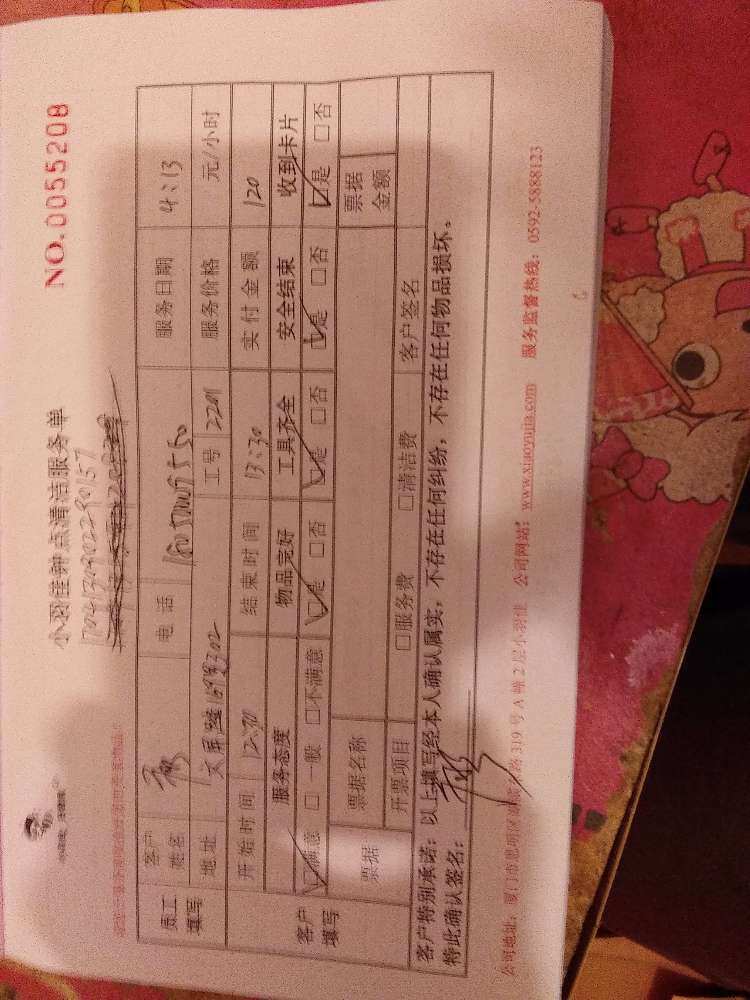 小羽佳钟点清洁服务单
NO.0055208
1704130902290157
员工填写
客户姓名
电话
服务日期 4:13
地址 文屏路
工号 2201
服务价格 元/小时
开始时间
结束时间 13:30
实付金额 120
客户填写
服务态度 物品完好 工具齐全 安全结束 收到卡片
☑满意 □一般 □不满意 ☑是 □否 ☑是 □否 ☑是 □否 ☑是 □否
票据
票据名称
票据金额
开票项目 □服务费 □清洁费 客户签名
客户特别承诺：以上填写经本人确认属实，不存在任何纠纷，不存在任何物品损坏。
特此确认签名：
公司地址：厦门市思明区 路319号A幢2层小羽佳 公司网站：www.xiaoyujia.com 服务监督热线：0592-5888123